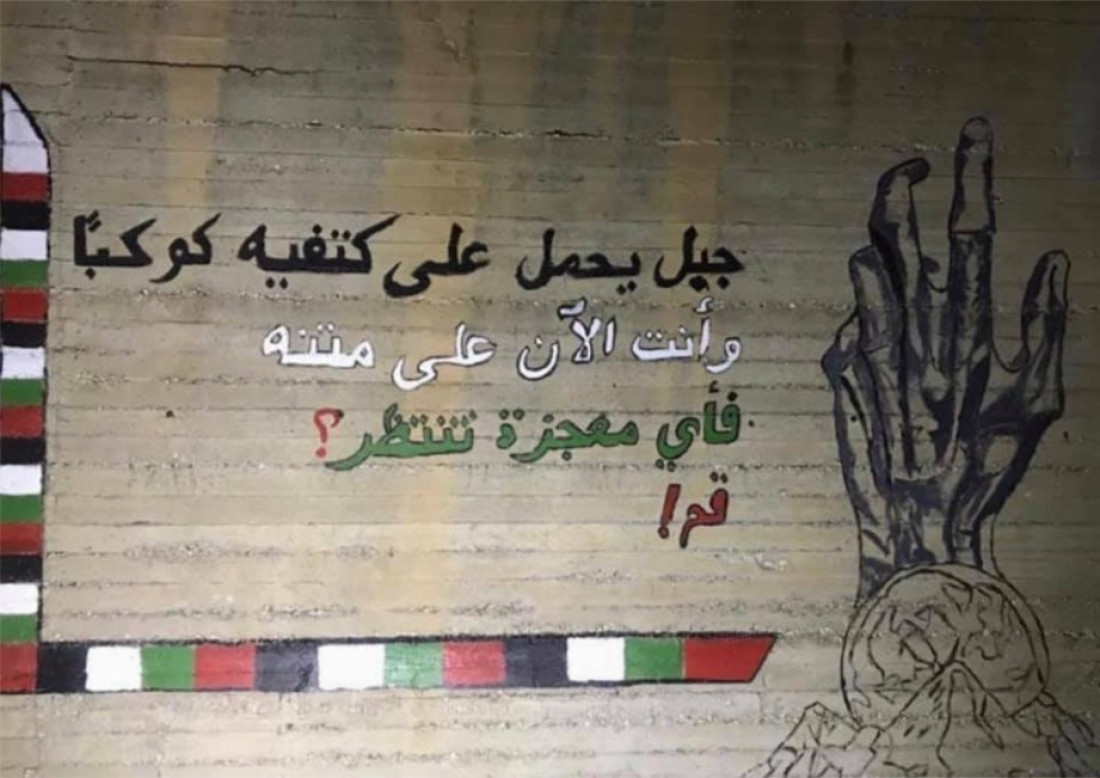 جبل يحمل على كتفيه كوكبًا
وأنت الآن على متنه
فأي معجزة تنتظر؟
قم!